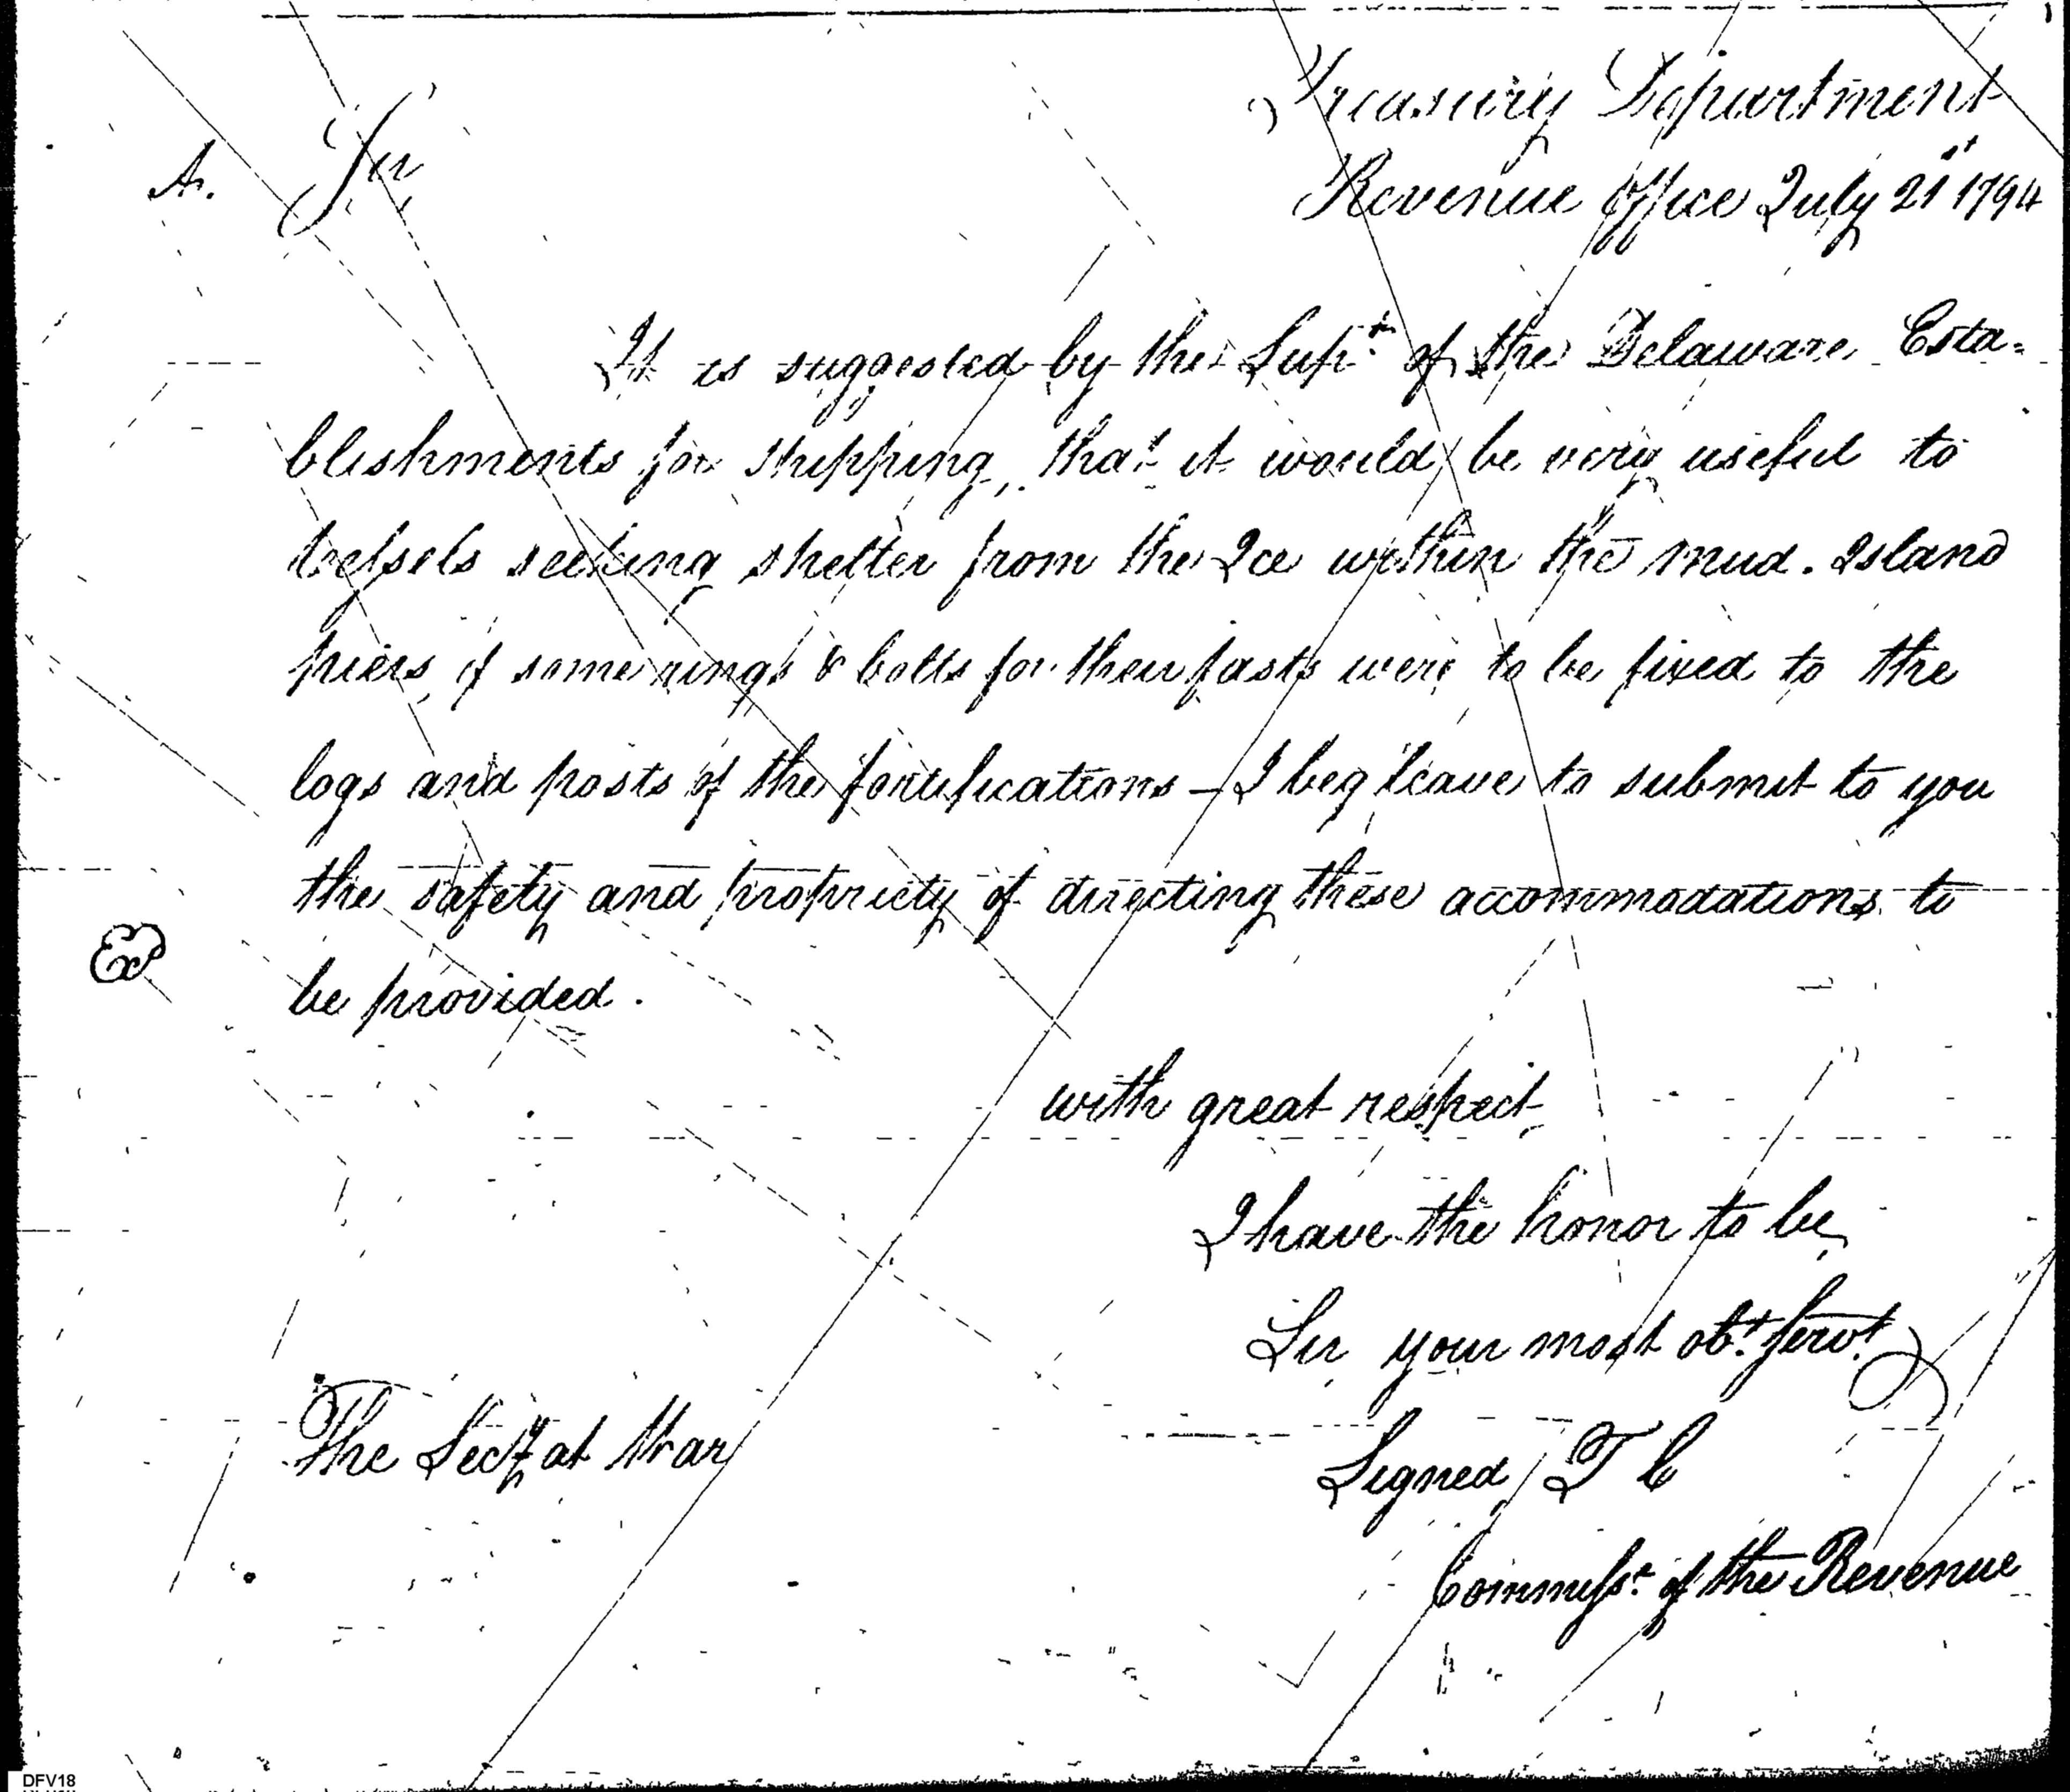 Treasury Department
A. Sir
Revenue Office July 21st 1794
It is suggested by the Supt. of the Delaware Esta=
blishments for shipping, that it would be very useful to
Vessels seeking shelter from the Ice within the mud. Island
piers, if some rings & bolts for their fasts were to be fixed to the
logs and posts of the fortifications - I beg leave to submit to you
the safety and propriety of directing these accommodations to
be provided.
with great respect,
I have the honor to be,
Sir your most obt. Servt.
The Secy at War
Signed T C
Commissr. of the Revenue
DFV18